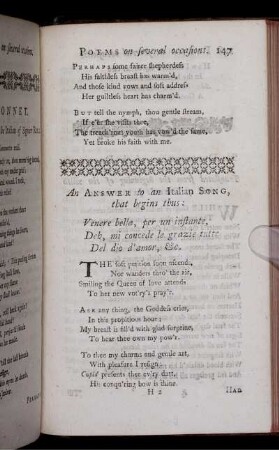 POEMS on several occasions. 147
PERHAPS some fairer shepherdess
His faithless breast has warm'd,
And those kind vows and soft address
Her guiltless heart has charm'd.
BUT tell the nymph, thou gentle stream,
If e'er she visits thee,
The treach'rous youth has vow'd the same,
Yet broke his faith with me.
An ANSWER to an Italian SONG,
that begins thus:
Venere bella, per un instante,
Deh, mi concede le grazie tutte
Del dio d'amor, &c.
THE soft petition soon ascend,
Nor wanders thro' the air,
Smiling the Queen of love attends
To her new vot'ry's pray'r.
ASK any thing, the Goddess cries,
In this propitious hour;
My breast is fill'd with glad surprize,
To hear thee own my pow'r.
To thee my charms and gentle art,
With pleasure I resign,
Cupid presents thee ev'ry dart,
His conqu'ring bow is thine.
H 2
HAD